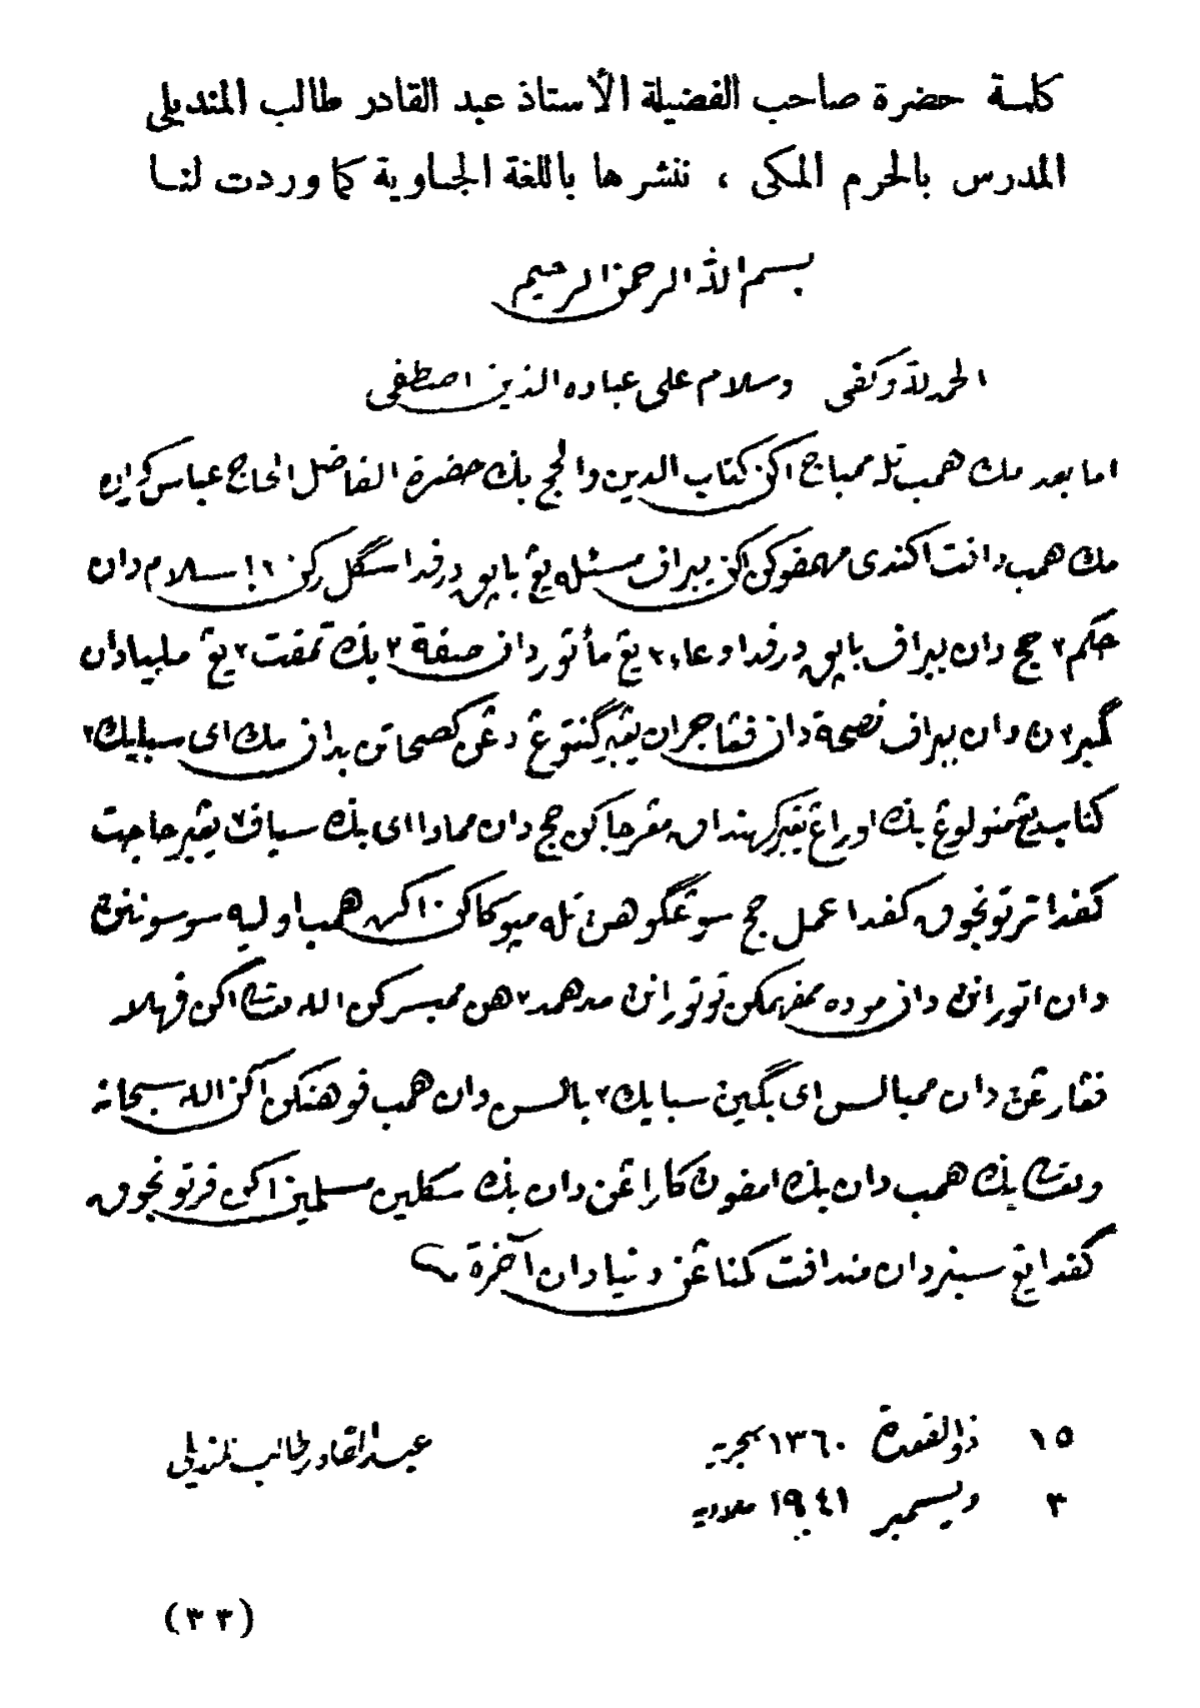 كلمة حضرة صاحب الفضيلة الأستاذ عبد القادر طالب المنديلي
المدرس بالحرم المكي ، ننشرها باللغة الجاوية كما وردت لنا
بسم الله الرحمن الرحيم
الحمد لله وكفى وسلام على عباده الذين اصطفى
اما بعد مك همب تله ممباچ اكن كتاب الدين والحج بڬ حضرة الفاضل الحاج عباس كراره
مك همب دافت اكندى مڠندوڠى اكن ببراف مسئله يڠ باپق درفدا سڬل ركن٢ اسلام دان
حكم٢ حج دان ببراف باپق درفدا دعاء٢ يڠ مأثور دان صفة٢ بڬ تمفت٢ يڠ مليا دان
ݢمبر٢ ن دان ببراف نصيحة دان ڤڠاجران يڠ برݢنتوڠ دڠن كصحاتن بدان مك اى سباݢى٢
كتاب يڠ منولوڠ بڬ اورڠ يڠ برکهندق مڠرجاكن حج دان ممادا اى بڬ سياف٢ يڠ برحاجت
كفدا ترتونجوق كفدا عمل حج سوڠݢوهن تله مپوكاكن اكن همب اوليه سوسوننن
دان اتورانن دان موده مفهمكن توتورانن مدهمد٢هن ممبسركن الله تعالى اكن فهلا
ڤڠارڠن دان ممبالس اى بݢين سباݢى٢ بالس دان همب فوهنكن اكن الله سبحانه
وتعالى بڬ همب دان بڬ امفون كاراڠن دان بڬ سكلين مسلمين اكن فرتونجوق
كفدا يڠ سبنر دان مندافت كمناڠن دنيا دان آخرة
١٥ ذو القعدة ١٣٦٠ هجرية
عبد القادر طالب المنديلي
٣ ديسمبر ١٩٤١ ميلادية
(٣٣)